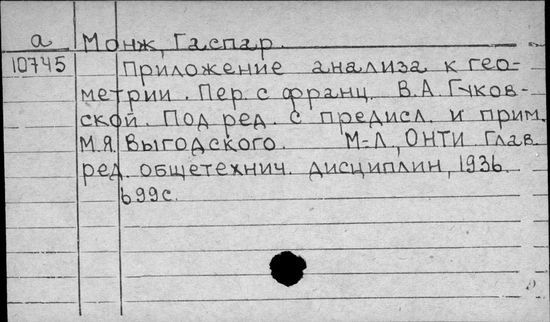 а Монж, Гаспар.
10745 Приложение анализа к гео-
метрии. Пер. с франц. В.А. Гуков-
ской. Под ред. с предисл. и прим.
М.Я. Выгодского. М-Л, ОНТИ Глав.
ред. общетехнич. дисциплин, 1936.
699с.